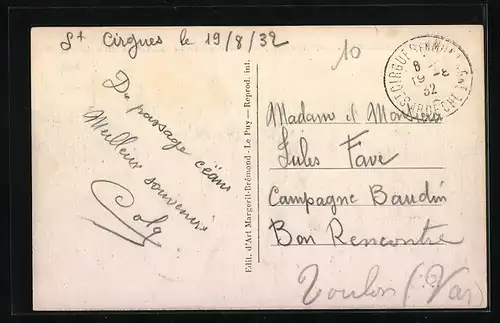 St Cirgues le 19/8/32
10
De passage céans
Meilleur souvenir
Edit. d'Art Margerit-Brémond - Le Puy — Reprod. int.
ST CIRGUES EN MONTAGNE
8
19 - 8
32
ARDECHE
Madame et Monsieur
Jules Fave
Campagne Baudin
Bon Rencontre
Toulon (Var)